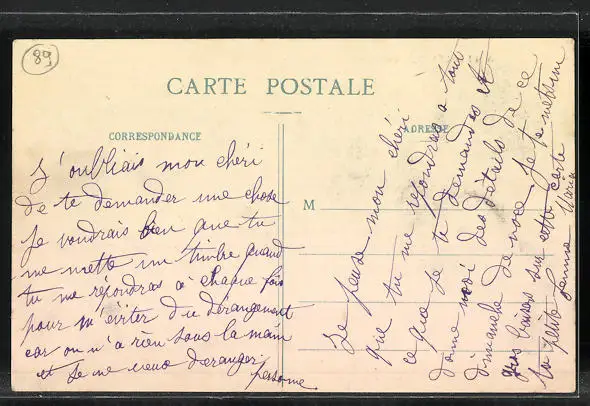 89
CARTE POSTALE
CORRESPONDANCE
ADRESSE
M
J'oubliais mon chéri
de te demander une chose
je voudrais bien que tu
me mette un timbre quand
tu me répondras à chaque fois
pour m'éviter du dérangement
car on n'a rien sous la main
et je ne veux déranger
personne
Je pense mon chéri
que tu me répondras à tout
ce que je te demandes et
donne moi des détails de ce
dimanche de noce. Je te
gros baisers sur cette carte
ta petite femme Maria